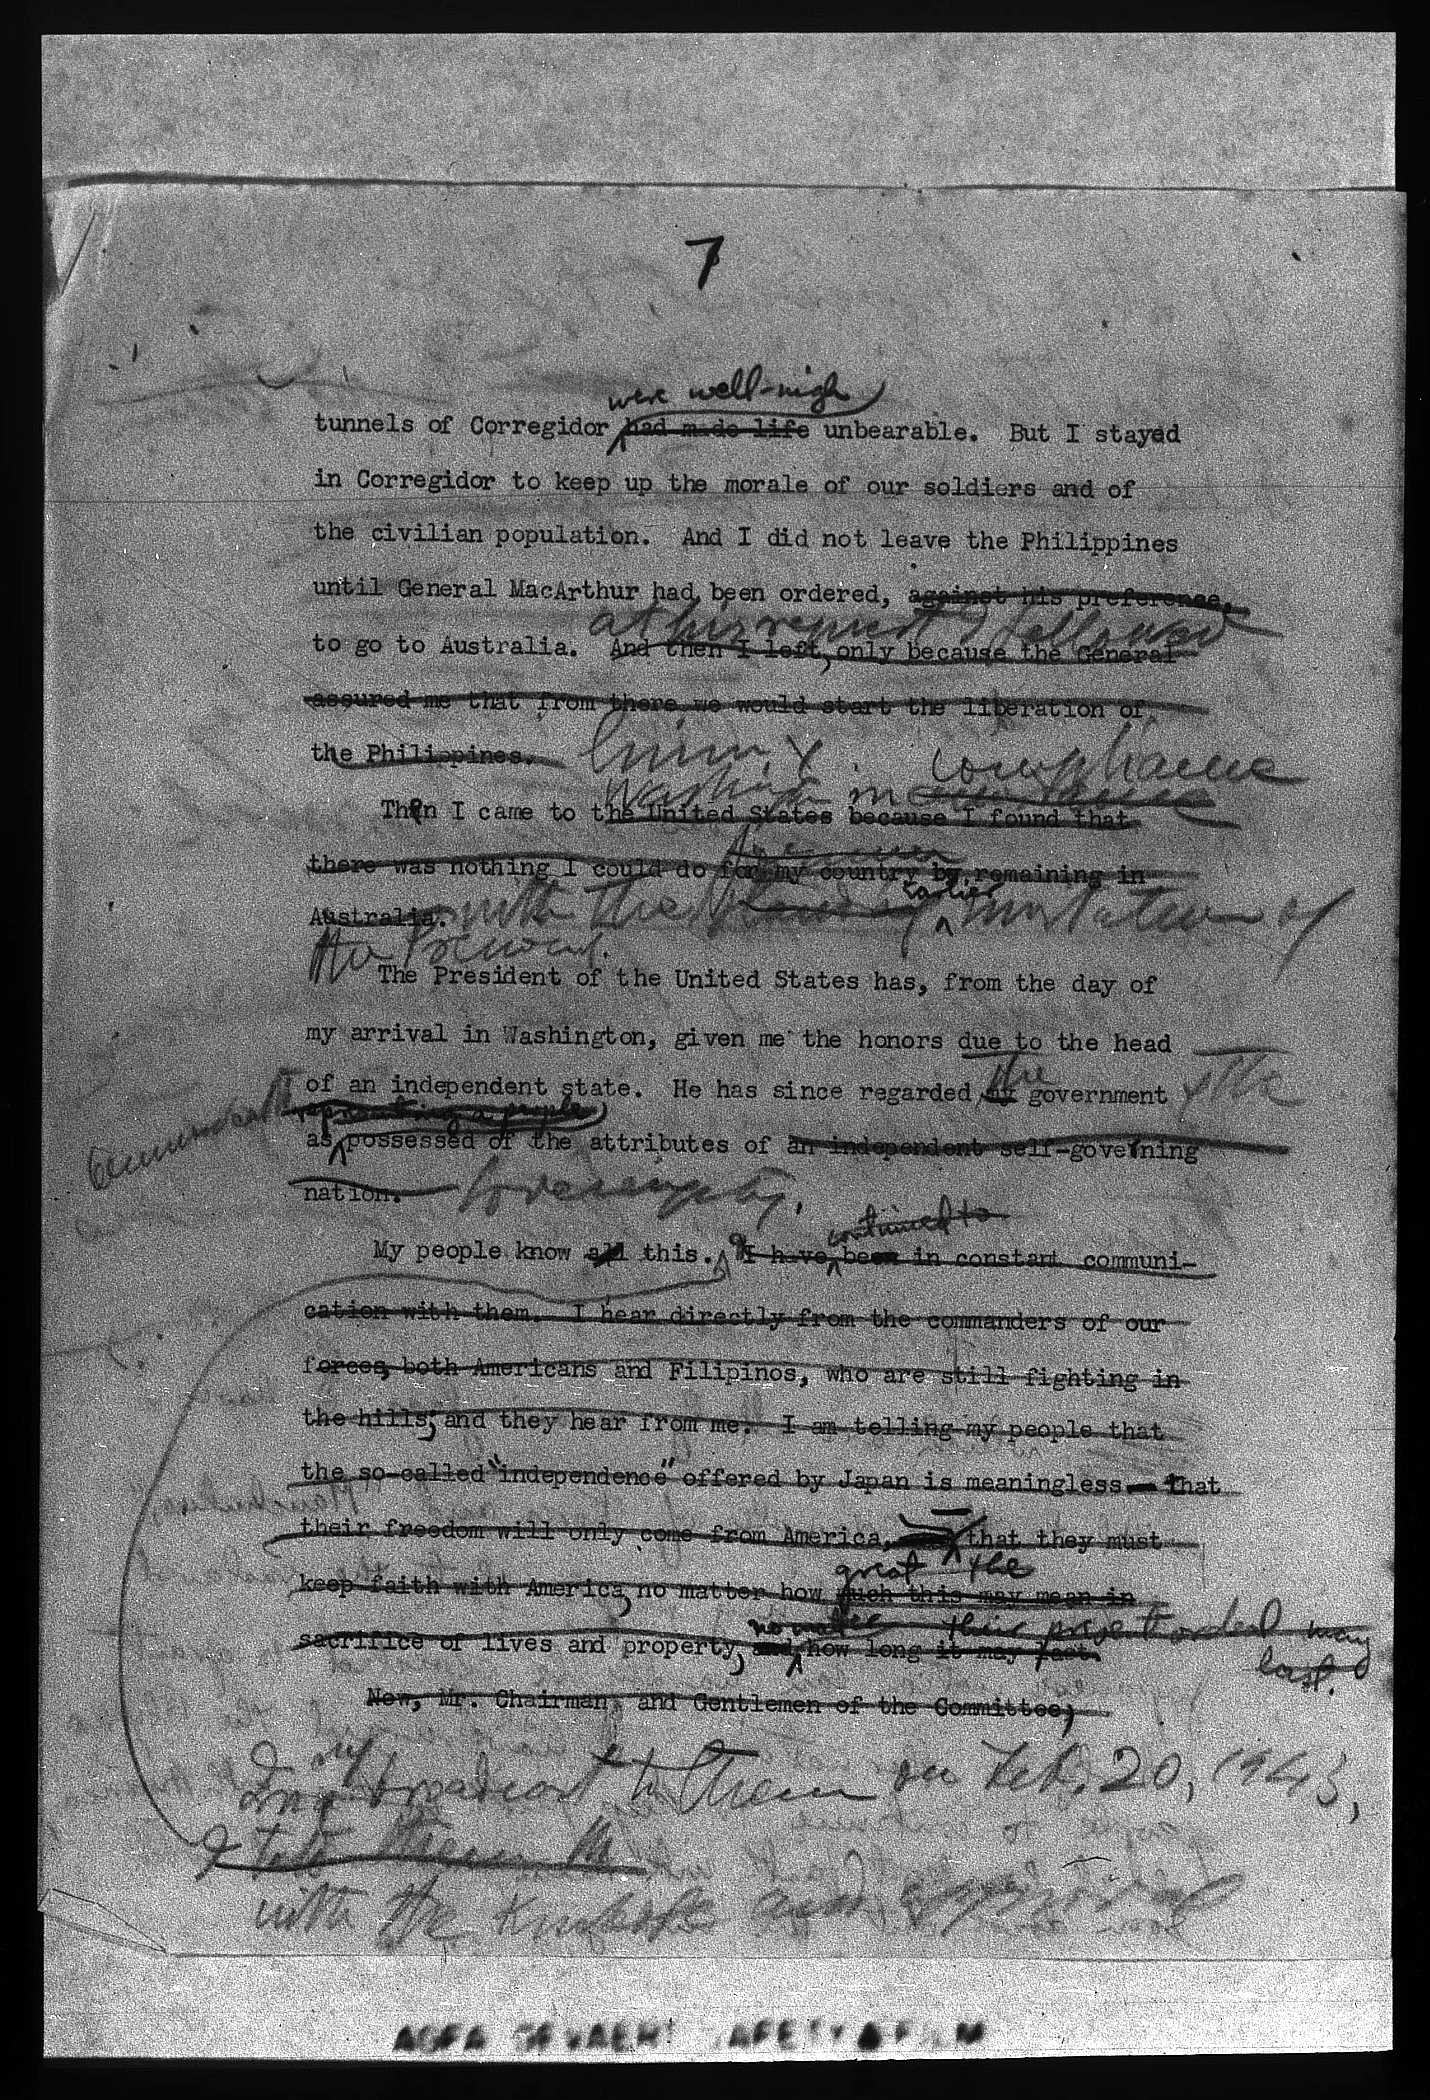 7
were well-nigh
tunnels of Corregidor had made life unbearable. But I stayed
in Corregidor to keep up the morale of our soldiers and of
the civilian population. And I did not leave the Philippines
until General MacArthur had been ordered, against his preference,
at his request I followed
to go to Australia. And then I left, only because the General
assured me that from there we would start the liberation of
the Philippines. him compliance
Washington in
Then I came to the United States because I found that
there was nothing I could do for my country by remaining in
earlier
Australia. with the invitation of
the President.
The President of the United States has, from the day of
my arrival in Washington, given me the honors due to the head
the & the
of an independent state. He has since regarded my government
representing a people
as possessed of the attributes of an independent self-governing
nation. Sovereignty.
continued to
My people know all this. I have been in constant communi-
cation with them. I hear directly from the commanders of our
forces, both Americans and Filipinos, who are still fighting in
the hills; and they hear from me. I am telling my people that
the so-called "independence" offered by Japan is meaningless — that
their freedom will only come from America, that they must
great the
keep faith with America, no matter how much this may mean in
no matter their present ordeal may
sacrifice of lives and property, and how long it may last.
last.
Now, Mr. Chairman, and Gentlemen of the Committee,
In my broadcast to them on Feb. 20, 1943,
I told them
with the knowledge and approval
AGFA GEVAERT SAFETY FILM